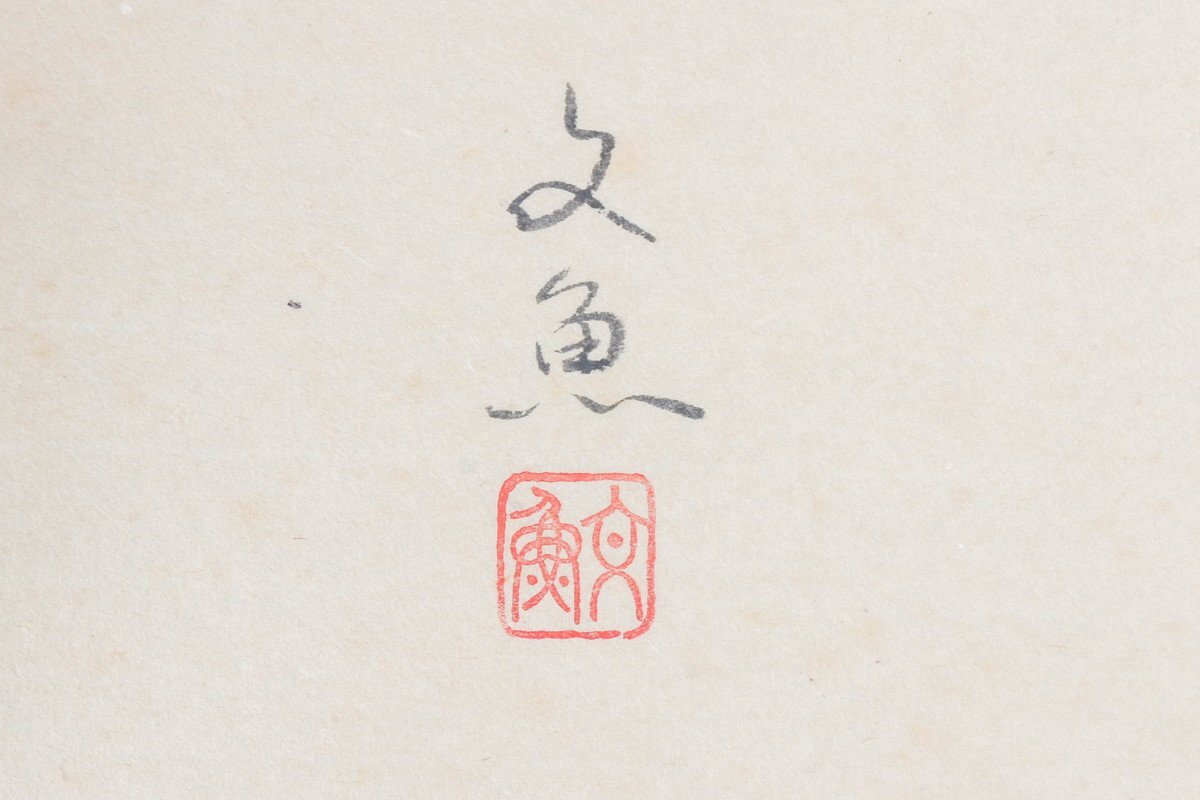 文魚
文魚